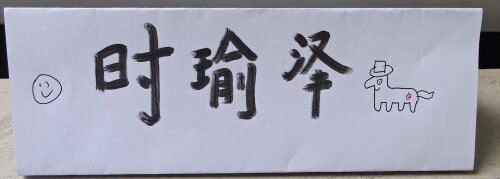 时瑜泽